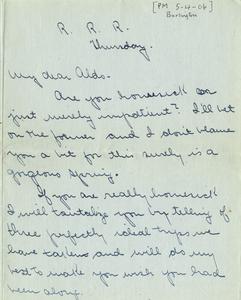 [PM 5-4-06]
Burlington
R. R. R.
Thursday.
My dear Aldo.
Are you homesick or
just merely impatient? I'll bet
on the former and I don't blame
you a bit for this surely is a
gorgeous spring.
If you are really homesick
I will tantalize you by telling of
three perfectly ideal trips we
have taken and will do my
best to make you wish you had
been along.